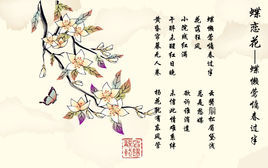 蝶恋花——蝶懒莺慵春过半
蝶懒莺慵春过半
花落狂风
小院残红满
午醉未醒红日晚
黄昏帘幕无人卷
云鬓鬅松眉黛浅
总是愁媒
欲诉谁消遣
未信此情难系绊
杨花犹有东风管